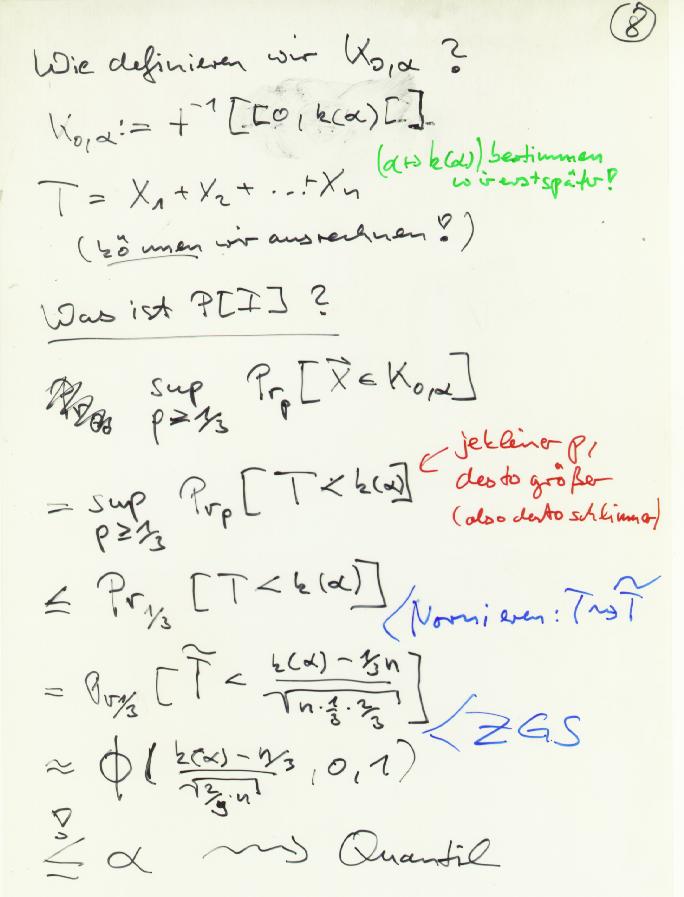 8
Wie definieren wir K₀,α ?
K₀,α := T⁻¹ [[0, k(α)[]
(α ↦ k(α)) bestimmen
wir erst später!
T = X₁ + X₂ + ... + Xₙ
(können wir ausrechnen!)
Was ist P[I] ?
sup p ≥ 1/3 Pr_p [X⃗ ∈ K₀,α]
= sup p ≥ 1/3 Pr_p [T < k(α)]
je kleiner p,
desto größer
(also desto schlimmer)
≤ Pr_1/3 [T < k(α)]
Normieren: T ⇝ T̃
= Pr_1/3 [T̃ < (k(α) - 1/3 n) / √(n · 1/3 · 2/3)]
ZGS
≈ Φ((k(α) - n/3) / √(2/9 · n), 0, 1)
!
≤ α ⇝ Quantil